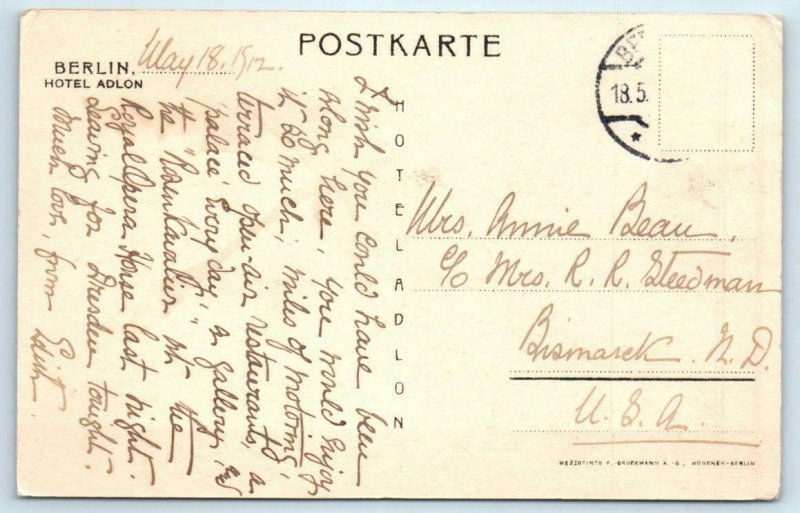 POSTKARTE
BERLIN, May 18, 1912.
HOTEL ADLON
I wish you could have been
along here, you would enjoy
it so much; miles of motoring,
terraced open-air restaurants, a
palace every day, a gallery, and
the "Rosenkavalier" at the
Royal Opera House last night.
Leaving for Dresden tonight.
Much love, from Edith.
HOTEL ADLON
18.5.
Mrs. Annie Beau,
c/o Mrs. R. R. Steedman
Bismarck N. D.
U. S. A.
MEZZOTINTO F. BRUCKMANN A.-G., MÜNCHEN-BERLIN